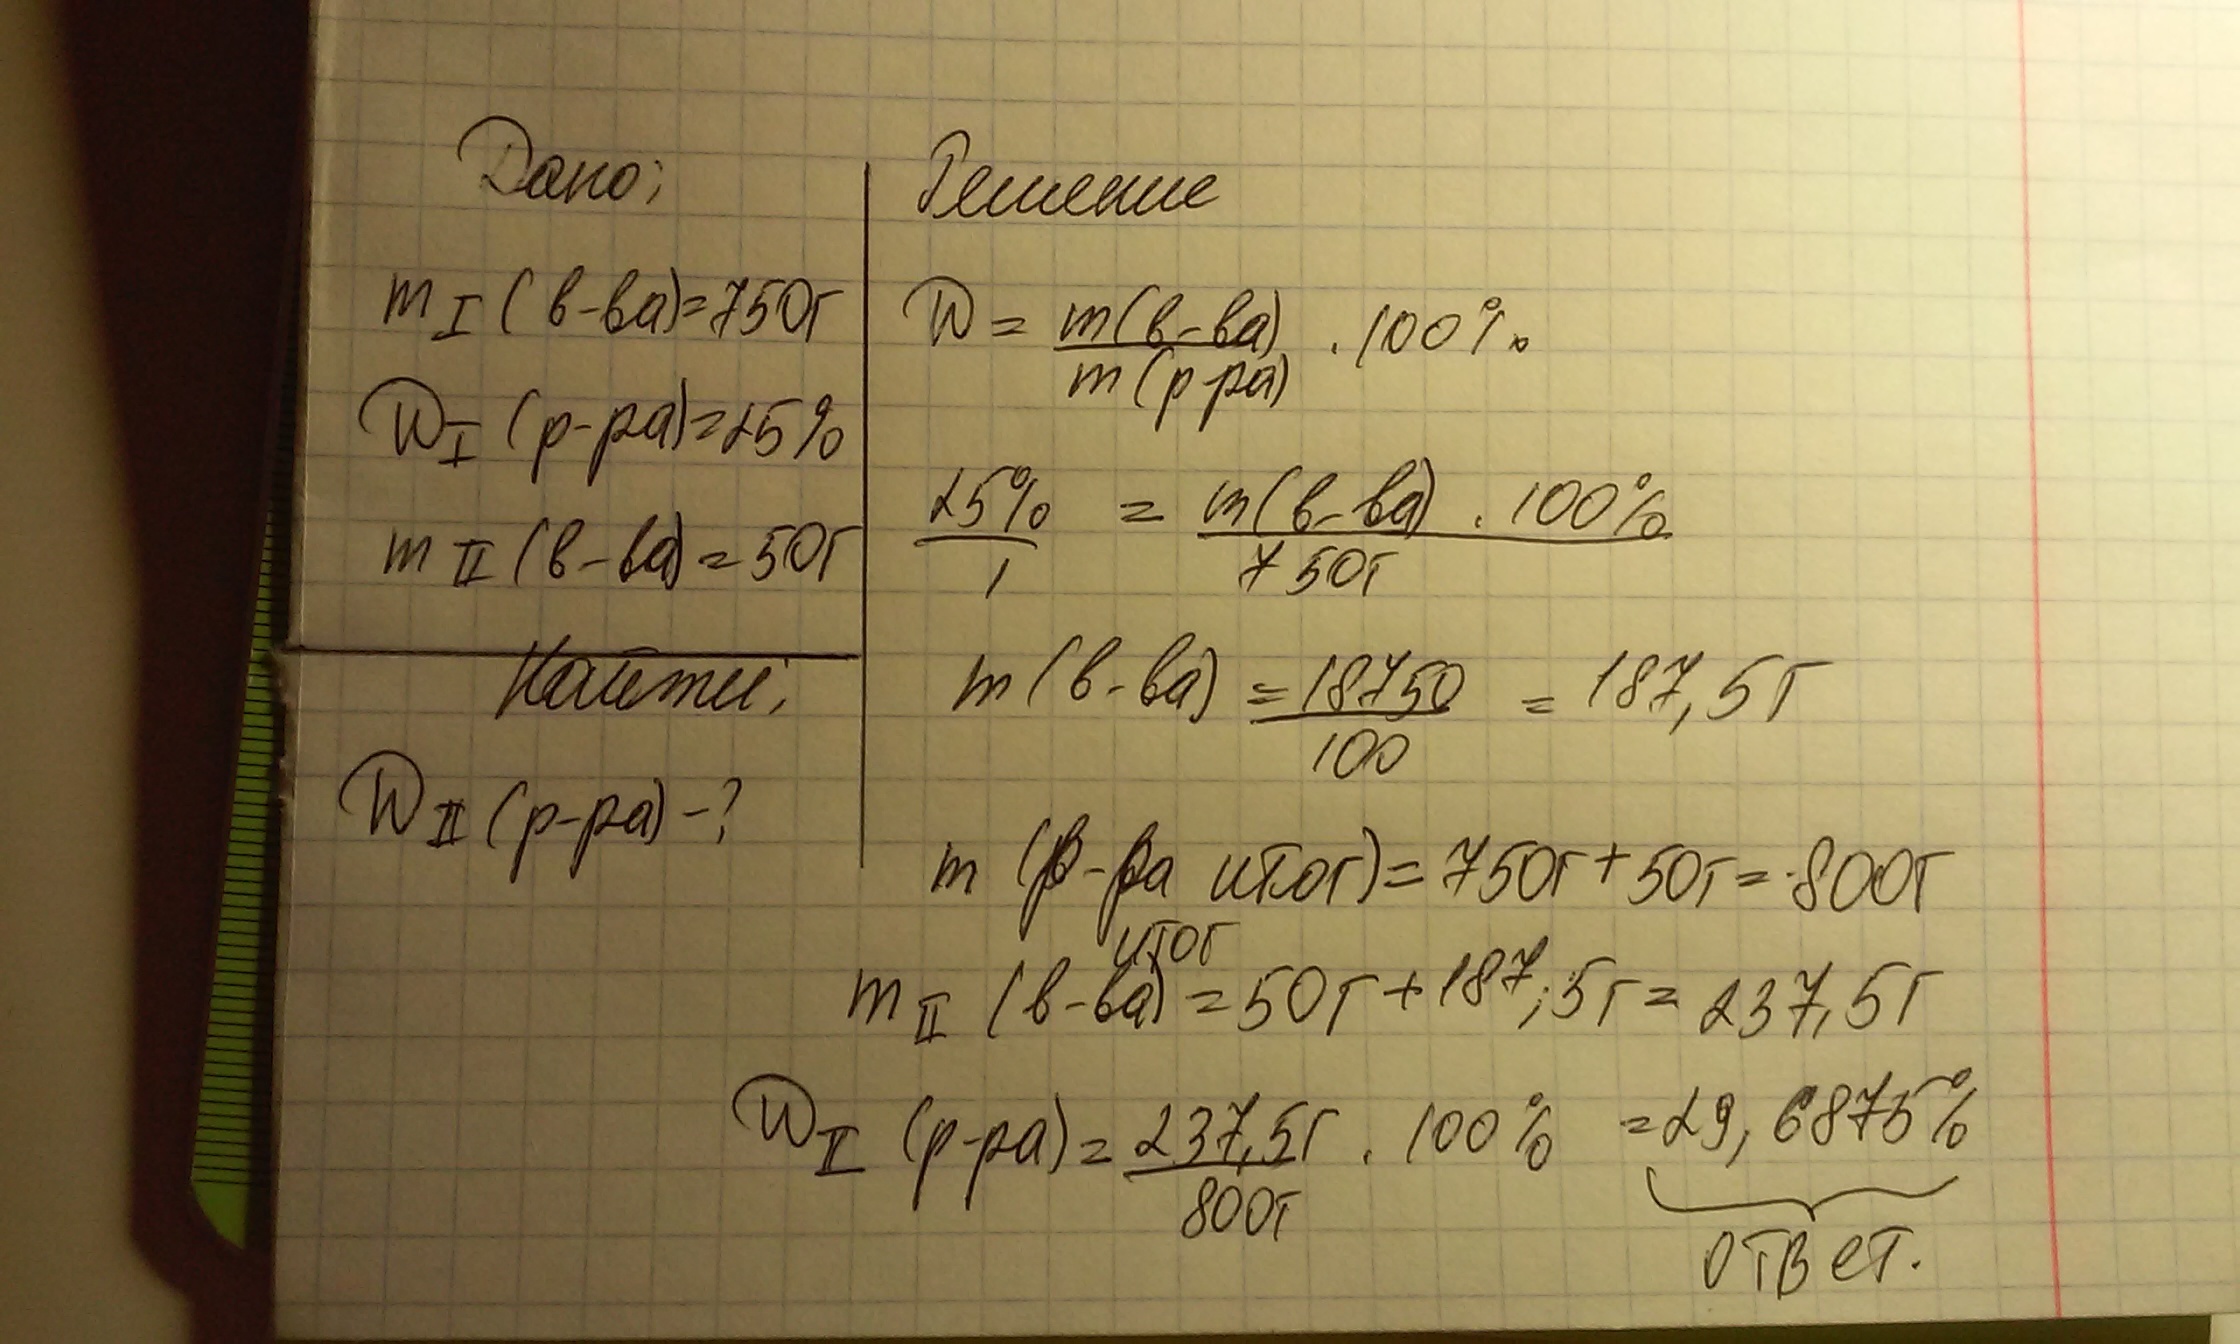 Дано:
m I (в-ва)=750г
W I (р-ра)=25%
m II (в-ва)=50г
Найти:
W II (р-ра)-?
Решение
W = m(в-ва) / m(р-ра) · 100%
25% / 1 = m(в-ва) · 100% / 750г
m(в-ва) = 18750 / 100 = 187,5г
m (р-ра итог)=750г+50г=800г
итог
m II (в-ва)=50г+187,5г=237,5г
W II (р-ра)= 237,5г / 800г · 100% =29,6875%
ответ.